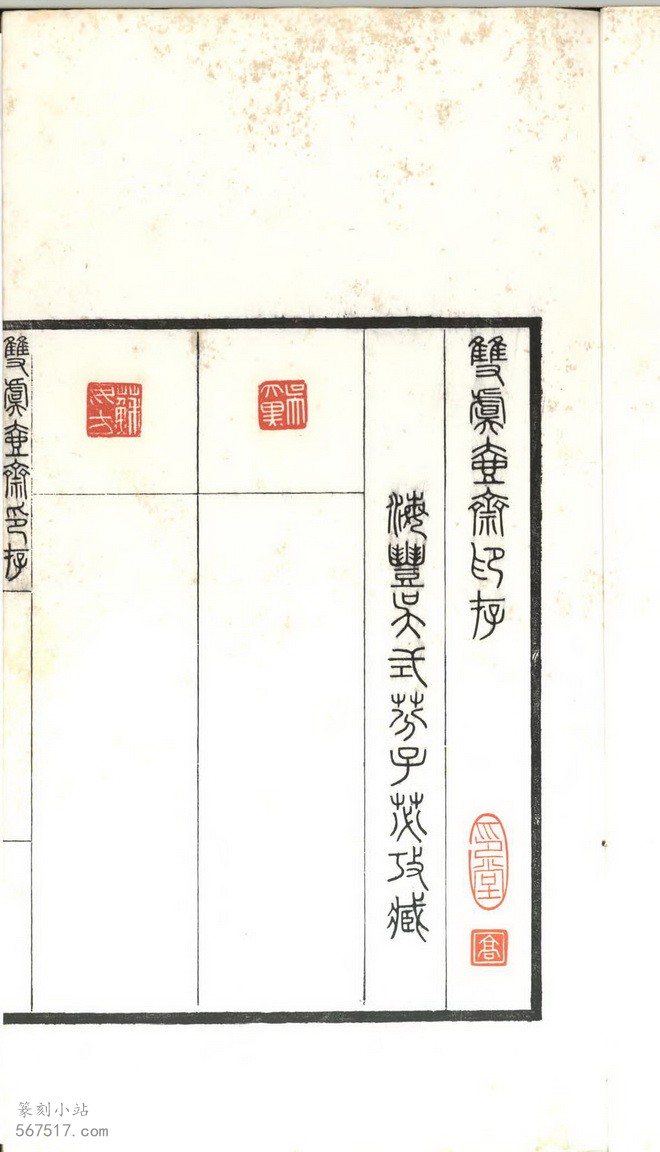 雙虞壺齋印存
印堂
高
海豐吳式芬子苾攷藏
雙虞壺齋印存
篆刻小站
567517.com